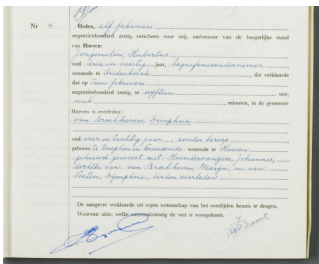 Nr 4
Heden, elf februari
negentienhonderd zestig, verscheen voor mij, ambtenaar van de burgerlijke stand
van Hoeven:
Jongenelen, Hubertus
oud drie en veertig jaar, begrafenisondernemer
wonende te Oudenbosch, die verklaarde
dat op tien februari
negentienhonderd zestig, te vijftien uur,
nul minuten, in de gemeente
Hoeven is overleden:
van Broekhoven, Dymphna
oud vier en tachtig jaar, zonder beroep
geboren te Rucphen en Vorenseinde wonende te Hoeven
gehuwd geweest met Johannes,
dochter van: van Broekhoven, en van:
Dymphna, beiden overleden
De aangever verklaarde uit eigen wetenschap van het overlijden kennis te dragen.
Waarvan akte, welke overeenkomstig de wet is voorgelezen.